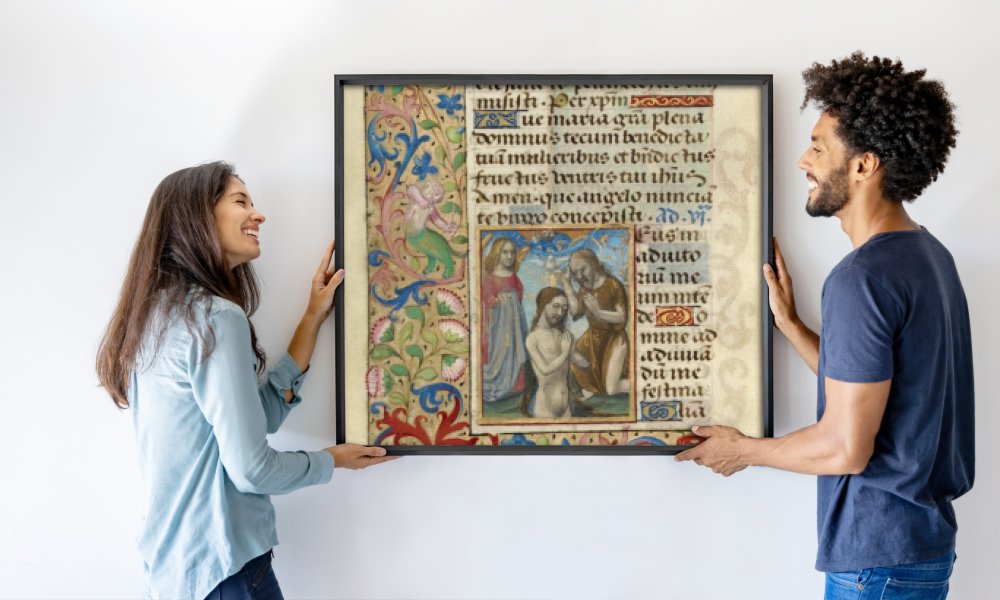 misisti · Per xp̄m
Aue maria grā plena
dominus tecum benedicta
tu in mulieribus et bn̄dictus
fructus ventris tui ihūs
Amen. que angelo nuncia
te virgo concepisti. ad. vj
Deus in
adiuto
riū me
um inte
de Do
mine ad
adiuuā
dū me
festina